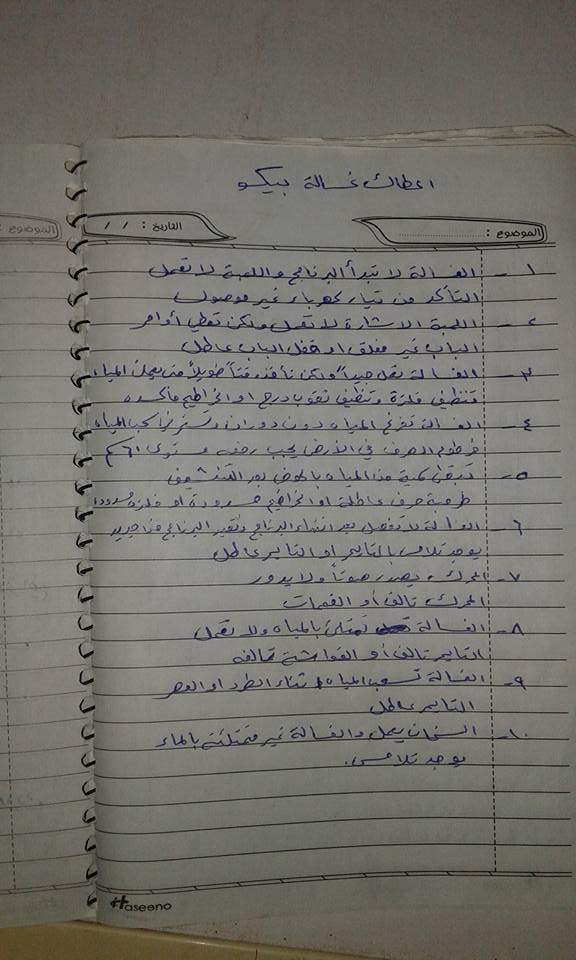 اعطال غسالة بيكو
الموضوع :
التاريخ : / /
١- الغسالة لا تبدأ البرنامج واللمبة لا تعمل
التأكد من تيار كهرباء غير موصول
٢- اللمبة الاشارة لا تعمل ولكن تعطي أوامر
الباب غير مغلق او قفل الباب عاطل
٣- الغسالة تعمل جيداً ولكن تأخذ وقتاً طويلاً حتى يصلن المياه
تنظيف فلترة وتنظيف ثقوب درج او الخراطيم
٤- الغسالة تفرغ المياه دون دوران وتستمر في سحب المياه
خرطوم الصرف في الأرض يجب رفعه مستوى ٦١ سم
٥- تبقى كمية من المياه بالحوض بعد التنشيف
طرمبة صرف عاطلة او الخراطيم مسدودة او فلترة مسدودة
٦- الغسالة لا تفصل بعد انتهاء البرنامج وتعيد البرنامج من جديد
يوجد تلامس بالتايمر او التايمر عاطل
٧- المحرك يصدر صوتاً ولا يدور
المحرك تالف أو الفحمات
٨- الغسالة تمتلئ بالمياه ولا تعمل
التايمر تالف أو الغواشة تالفه
٩- الغسالة تسحب المياه اثناء الطرد او العصر
التايمر عاطل
١٠- السخان يعمل والغسالة غير ممتلئة بالماء
يوجد تلامس.
Haseeno